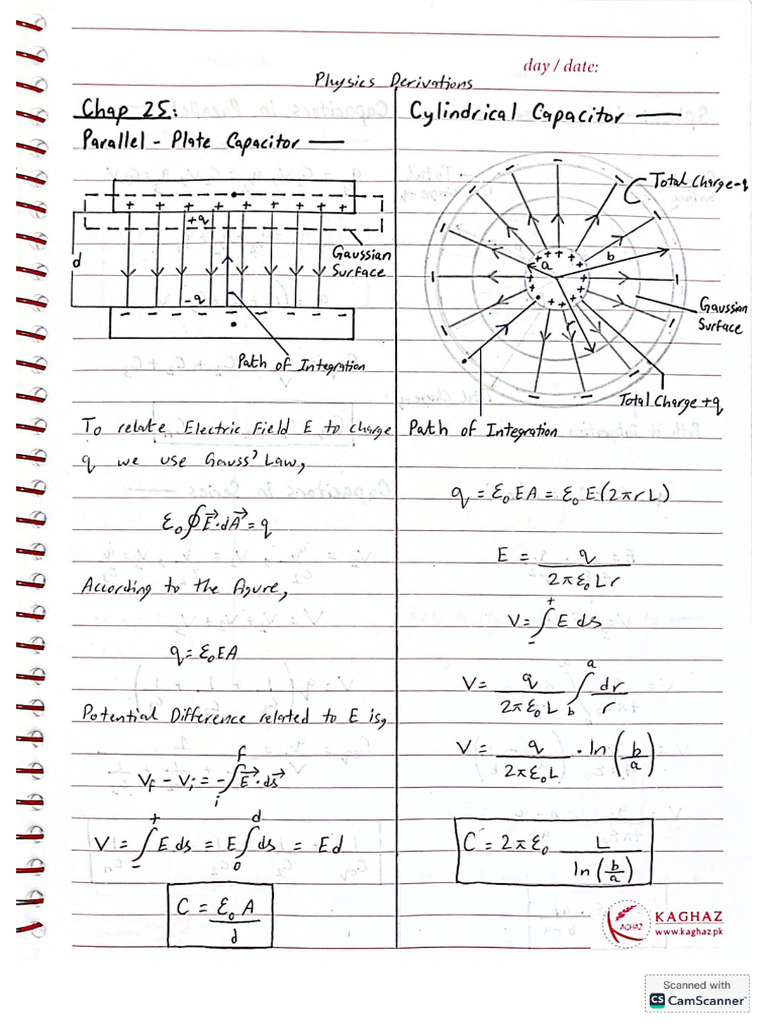 day / date:
Physics Derivations
Chap 25:
Parallel - Plate Capacitor —
+ + + + + + + + +
+q
Gaussian
Surface
d
-q
- - - - - - - - -
Path of Integration
To relate Electric Field E to charge
q we use Gauss' Law,
ε₀∮E⃗·dA⃗ = q
According to the figure,
q = ε₀EA
Potential Difference related to E is,
V_f - V_i = -∫_i^f E⃗·ds⃗
V = ∫_-^+ E ds = E∫_0^d ds = Ed
C = ε₀A/d
Cylindrical Capacitor —
Total Charge -q
a
b
r
Gaussian
Surface
Total Charge +q
Path of Integration
q = ε₀EA = ε₀E(2πrL)
E = q/2πε₀Lr
V = ∫_-^+ E ds
V = q/2πε₀L ∫_b^a dr/r
V = q/2πε₀L · ln(b/a)
C = 2πε₀ L/ln(b/a)
KAGHAZ
KAGHAZ
www.kaghaz.pk
Scanned with
CS CamScanner